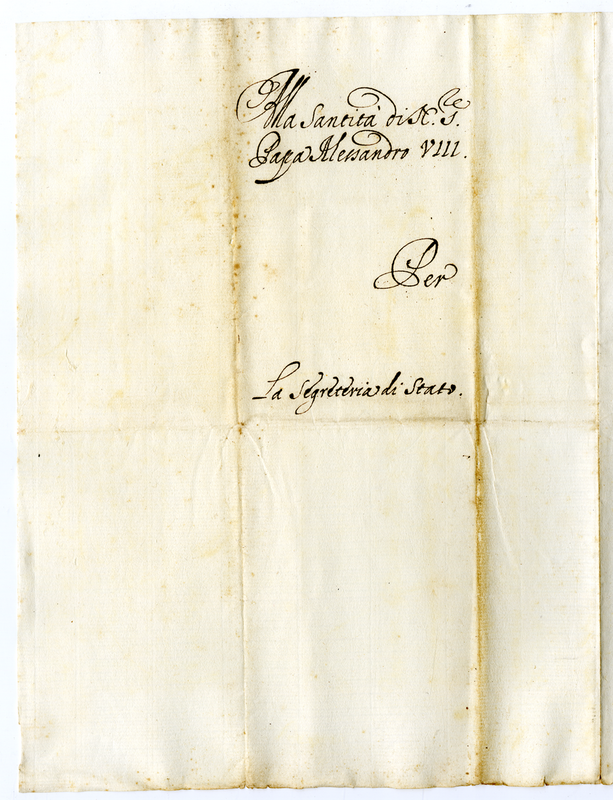 Alla Santità di N.ro S.re
Papa Alessandro VIII.
Per
La Segreteria di Stato.